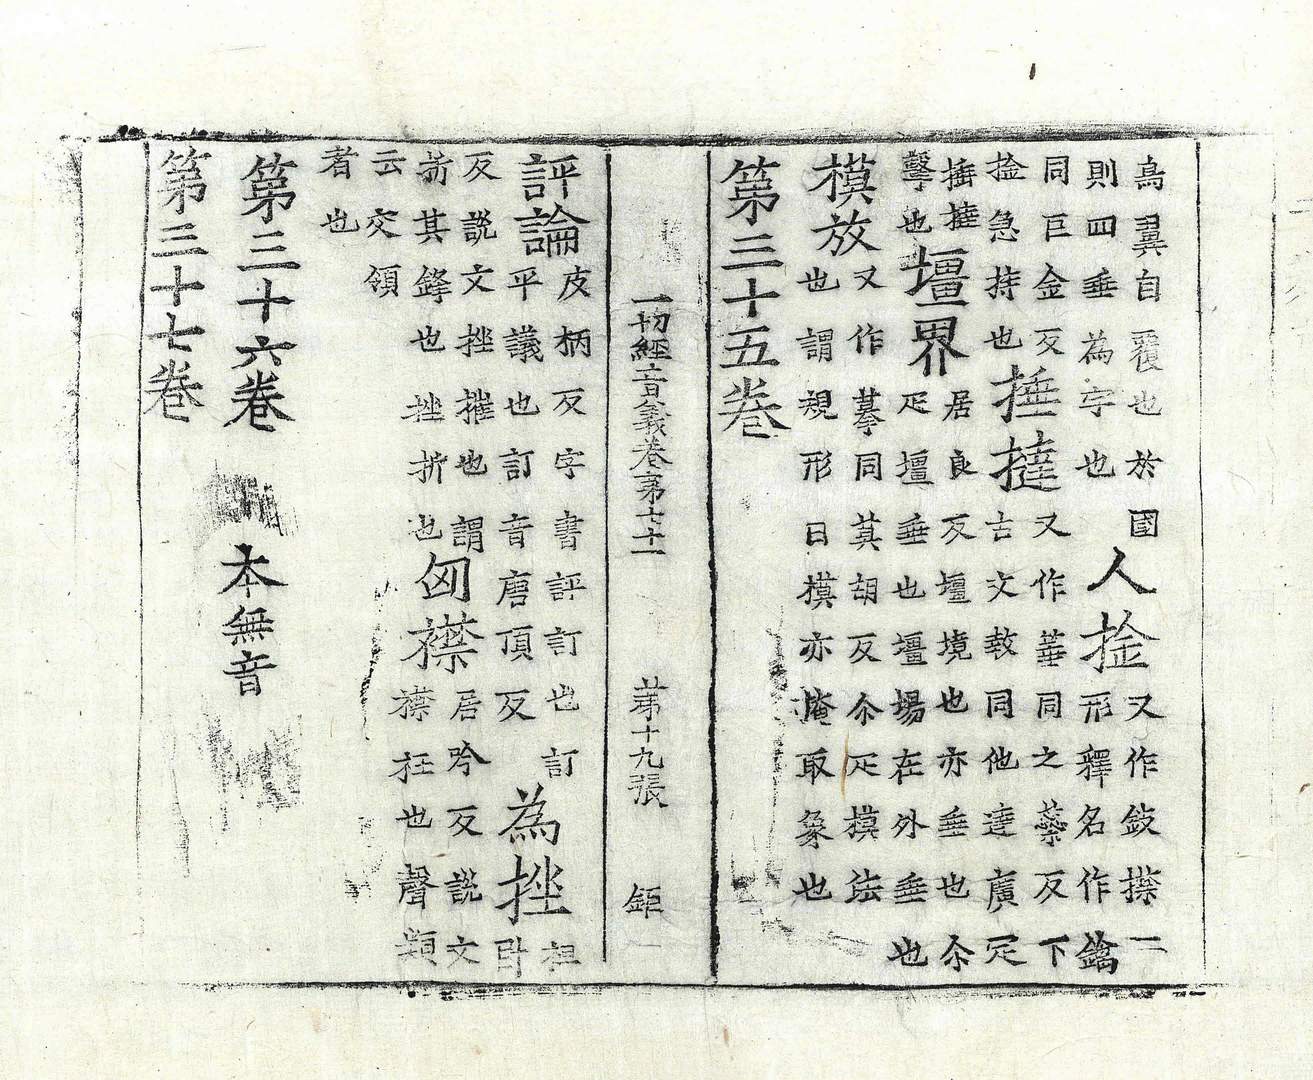 鳥翼自覆也於國
則四垂為字也
人捦
又作㩒二
形釋名作鐱
同巨金反
捦急持也
捶撻
又作箠同之蘂反下
古文同他達廣疋
捶撻
擊也
壃界
居良反壃境也亦垂也尒
疋壇垂也壃場在外垂也
模放
又作摹同莫胡反尒疋模法
也謂規形曰模亦掩取象也
第三十五卷
一切經音義卷第七十一 第十九張 鉅
評論
皮柄反字書評訂也訂
平議也訂音唐頂反
為挫
祖
卧
反說文挫摧也謂
折其鋒也挫折也
匈襟
居吟反說文
襟衽也聲類
云交領
者也
第三十六卷 本無音
第三十七卷